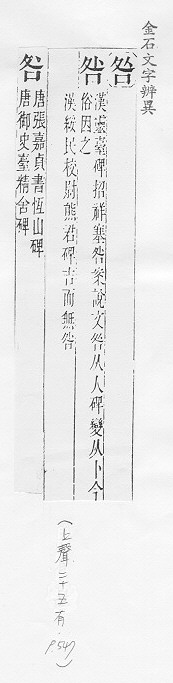 金石文字辨異
咎
漢靈臺碑招祥塞咎案說文咎从人碑變从卜今
俗因之
漢綏民校尉熊君碑吉而無咎
唐張嘉貞書恆山碑
唐御史臺精舍碑
(上聲二十五有 p.547)